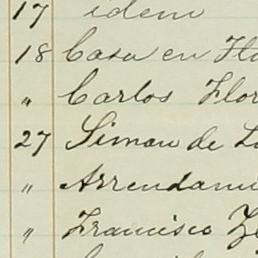 17 idem
18 Casa en Flo
" Carlos Flor
27 Simon de L
" Arrendami
" Francisco Ze